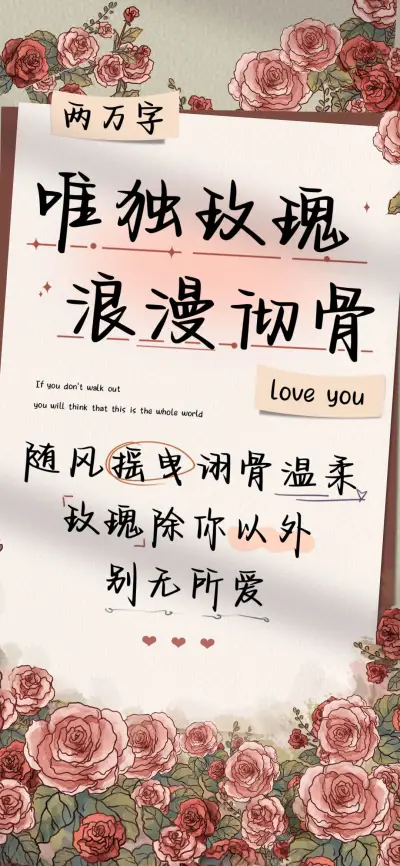 两万字
唯独玫瑰
浪漫彻骨
If you don't walk out
you will think that this is the whole world
love you
随风摇曳诩骨温柔
玫瑰除你以外
别无所爱